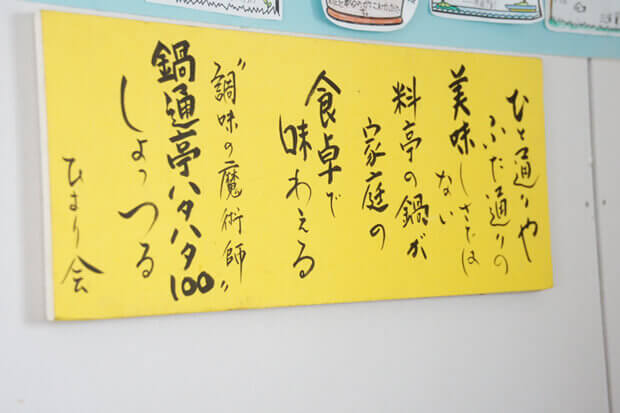 ひと通りや
ふた通りの
美味しさでは
ない
料亭の鍋が
家庭の
食卓で
味わえる
"調味の魔術師"
鍋通亭ハタハタ100
しょっつる
ひまり会